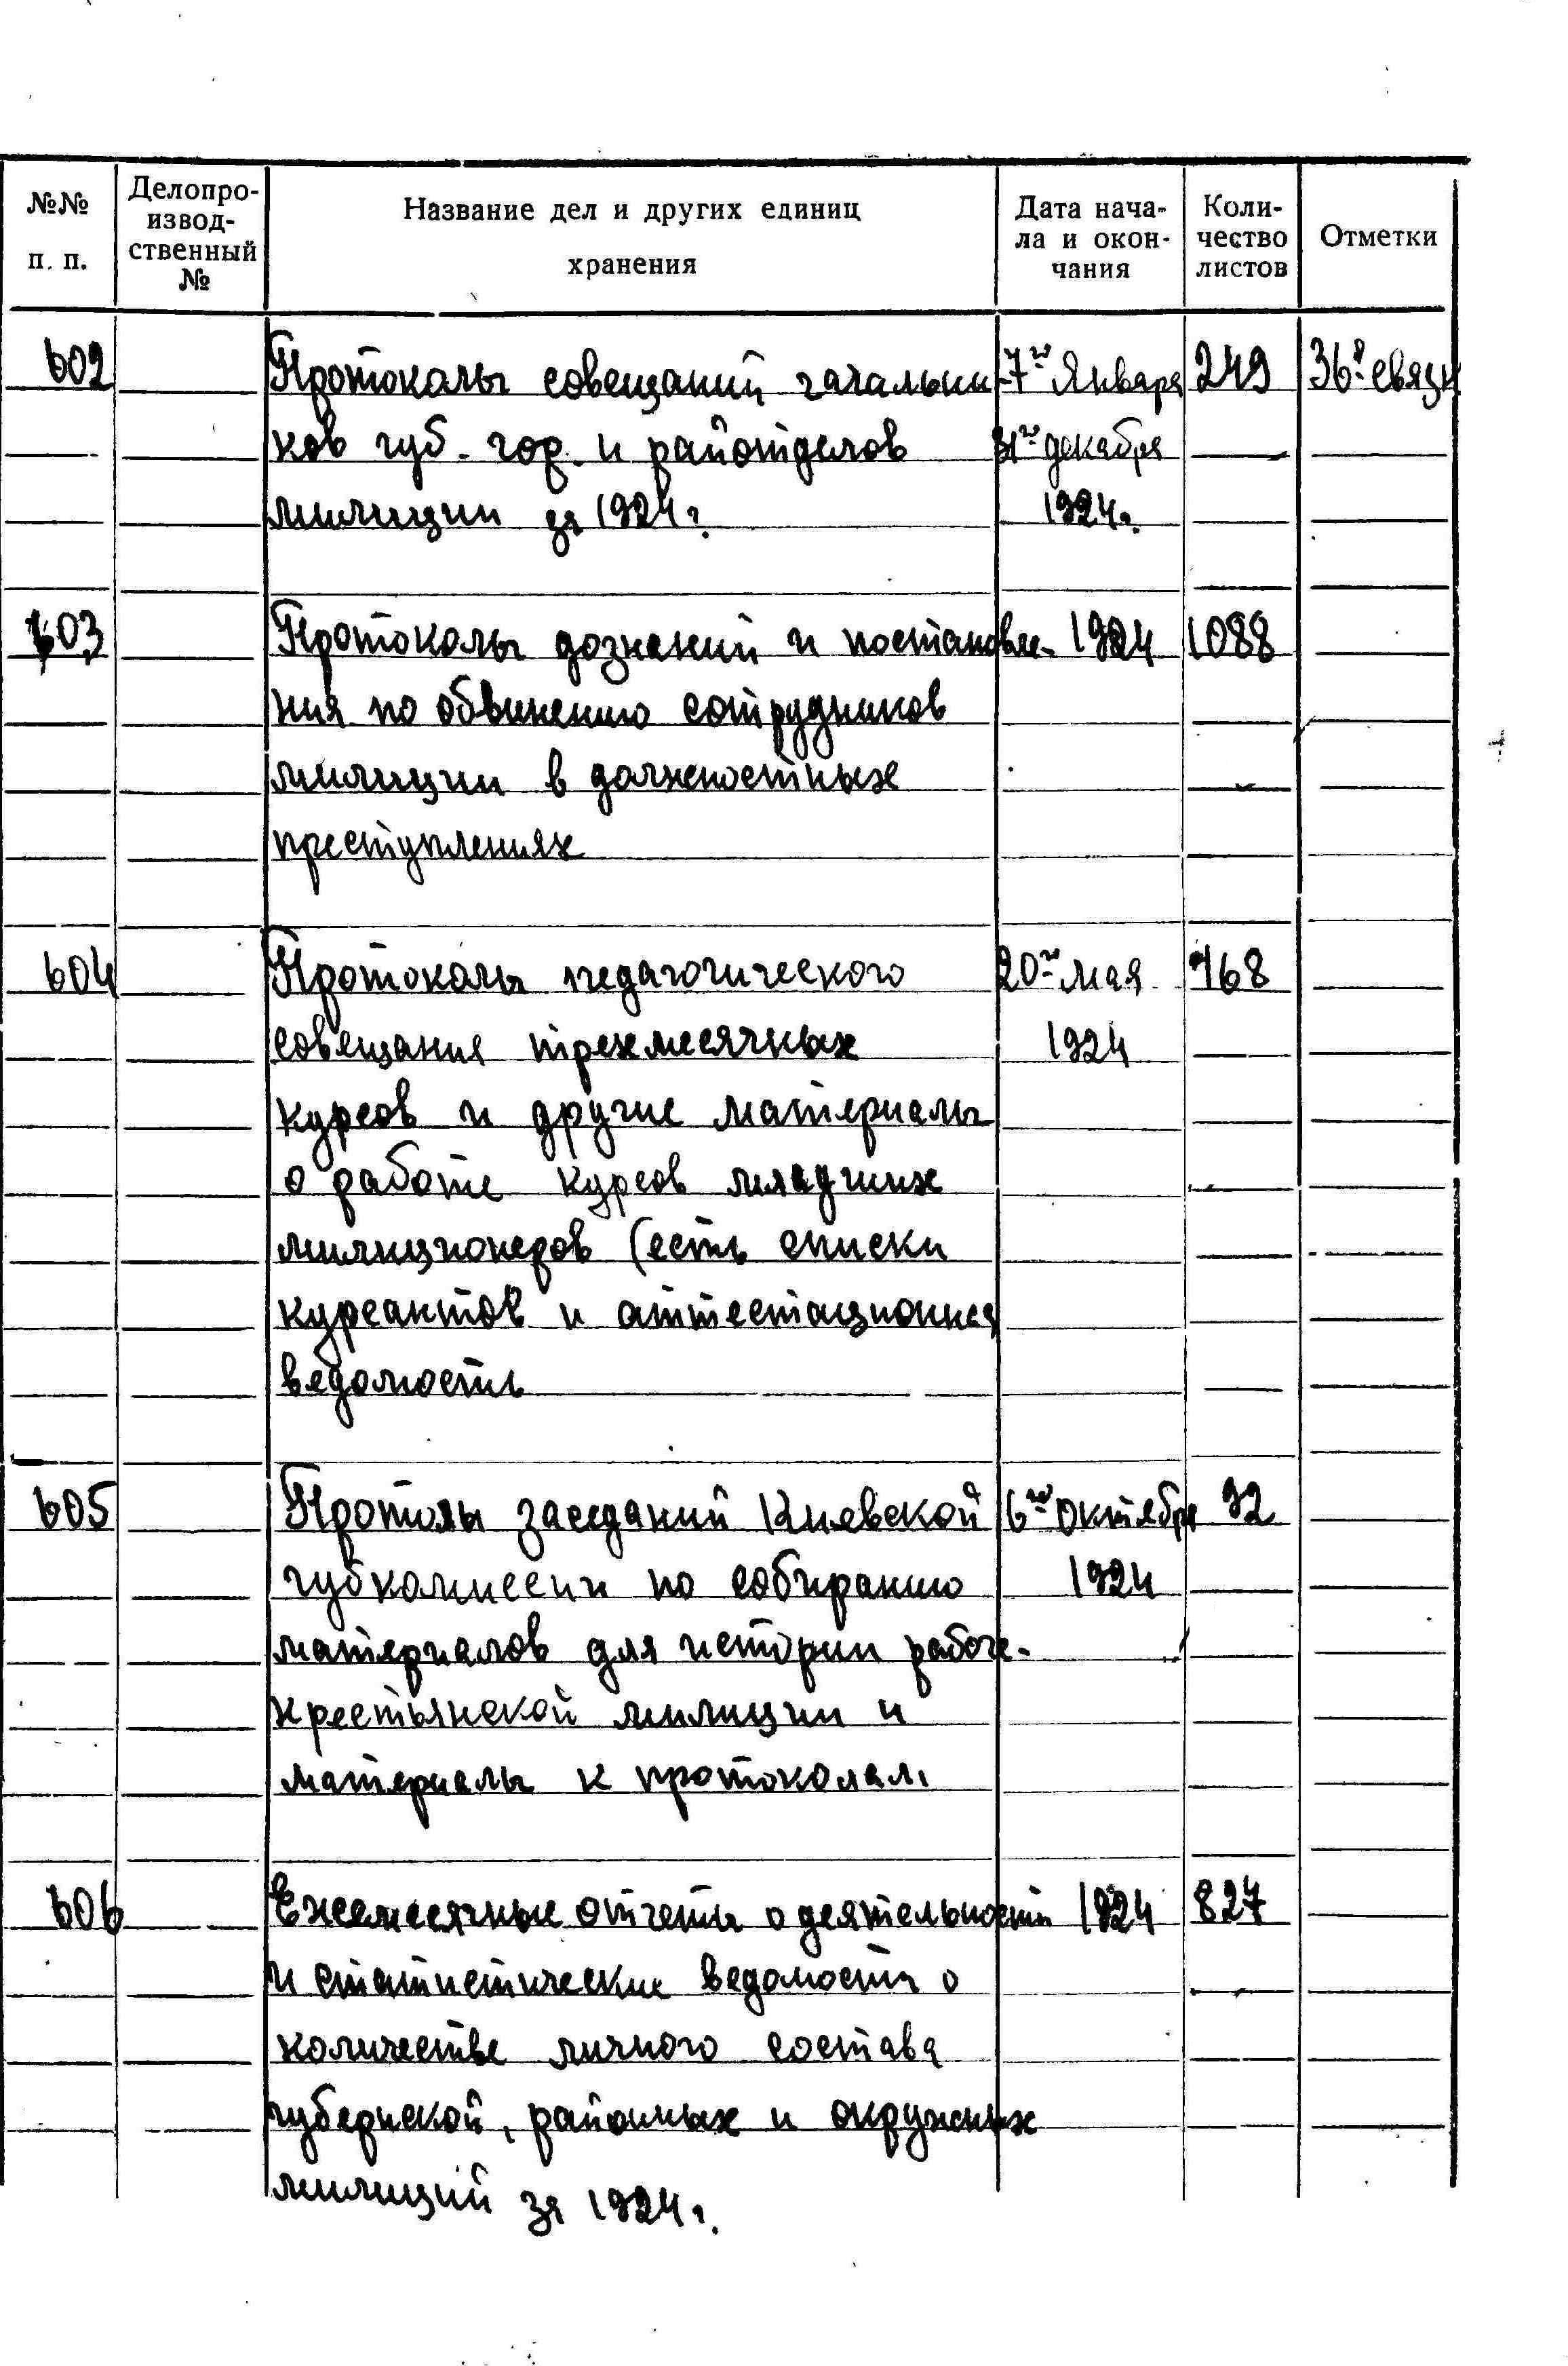 №№ п. п. Делопро-извод-ственный № Название дел и других единиц хранения Дата нача-ла и окон-чания Коли-чество листов Отметки
602 Протоколы совещаний начальни 7го Января 249 36я связк
ков губ. гор. и райотделов 31го декабря
милиции за 1924г. 1924г.
603 Протоколы дознаний и постановле- 1924 1088
ния по обвинению сотрудников
милиции в должностных
преступлениях
604 Протоколы педагогического 20го мая 168
совещания трехмесячных 1924
курсов и другие материалы
о работе курсов младших
милиционеров (есть списки
курсантов и аттестационная
ведомость
605 Протолы заседаний Киевской 6го Октября 92
губкомиссии по собиранию 1924
материалов для истории рабоче-
крестьянской милиции и
материалы к протоколам
606 Ежемесячные отчеты о деятельности 1924 827
и статистические ведомости о
количестве личного состава
губернской, районных и окружных
милиций за 1924г.